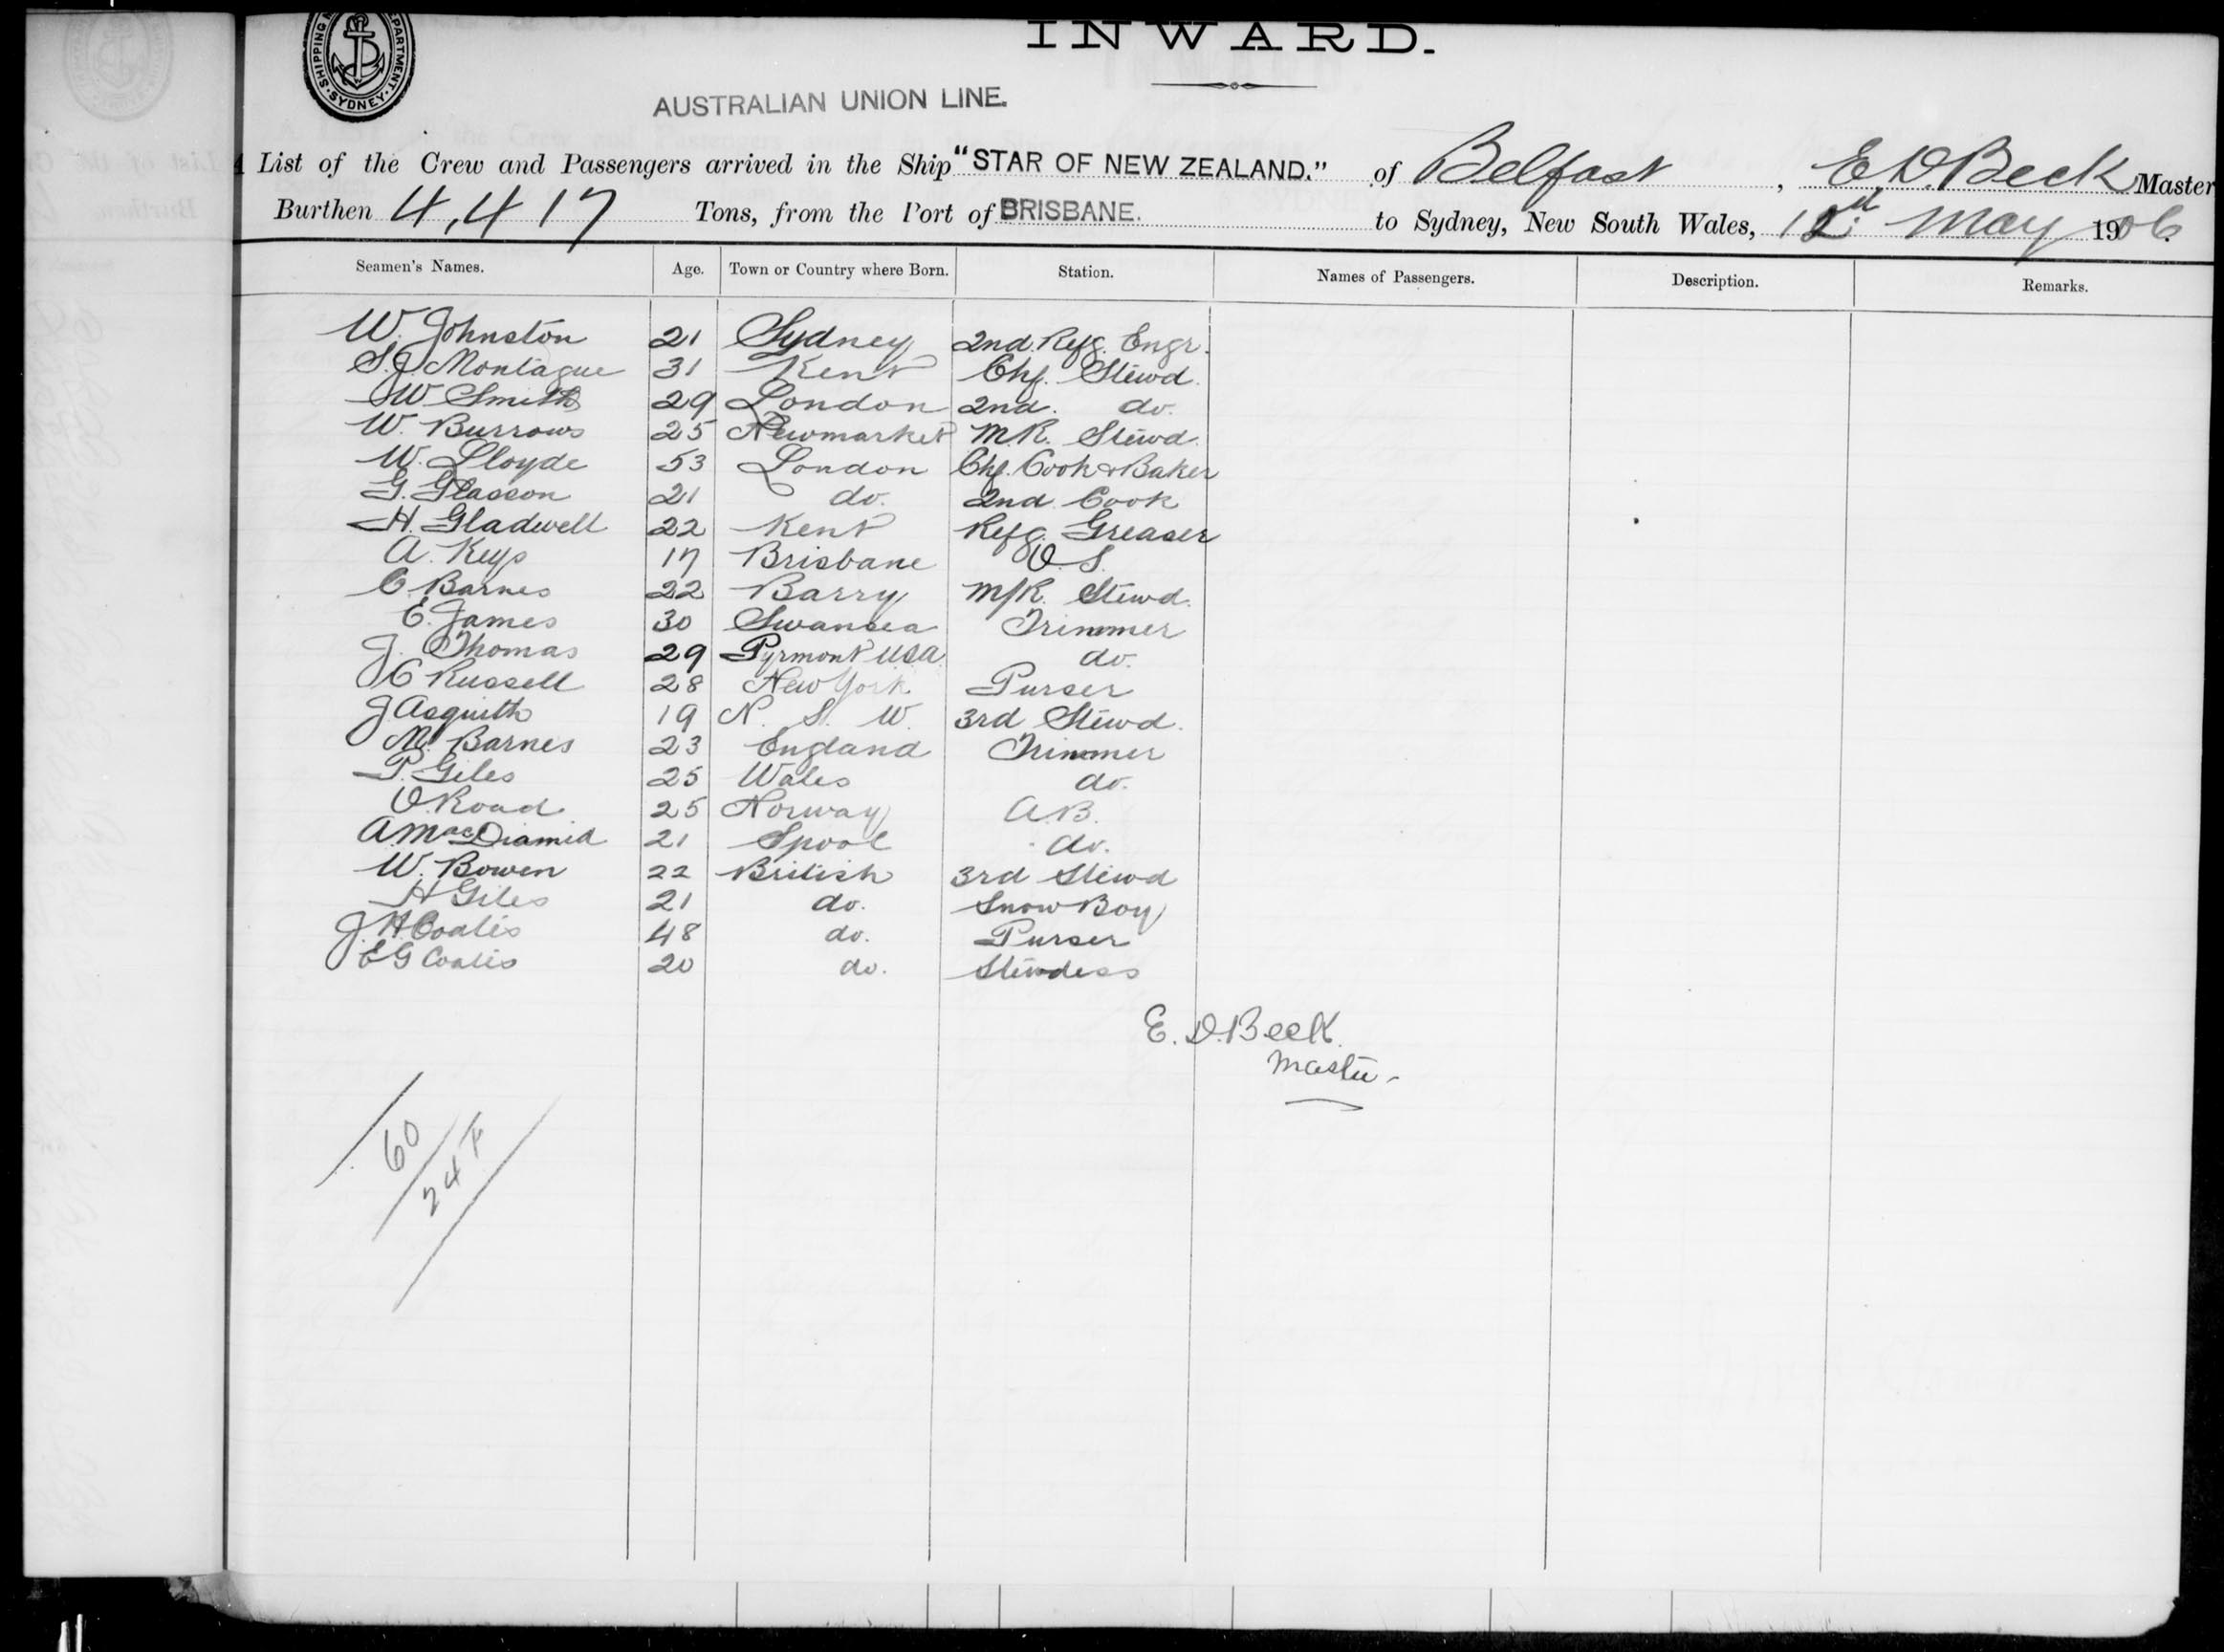 INWARD.
SHIPPING DEPARTMENT. SYDNEY.
AUSTRALIAN UNION LINE.
List of the Crew and Passengers arrived in the Ship "STAR OF NEW ZEALAND." of Belfast, E. D. Beck Master
Burthen 4,417 Tons, from the Port of BRISBANE. to Sydney, New South Wales, 12th May 1906.
Seamen's Names. Age. Town or Country where Born. Station. Names of Passengers. Description. Remarks.
W. Johnston 21 Sydney 2nd Refg. Engr.
S. J. Montague 31 Kent Chf. Stewd.
W Smith 29 London 2nd. do.
W. Burrows 25 Newmarket M.R. Stewd.
W. Lloyde 53 London Chf. Cook & Baker
G. Glasson 21 do. 2nd Cook
H. Gladwell 22 Kent Refg. Greaser
A. Keys 17 Brisbane O.S.
C. Barnes 22 Barry M/R. Stewd.
E. James 30 Swansea Trimmer
J. Thomas 29 Pyrmont USA do.
J C Russell 28 New York Purser
J Asquith 19 N. S. W. 3rd Stewd.
M. Barnes 23 England Trimmer
P. Giles 25 Wales do.
O. Road 25 Norway A.B.
A. MacDiamid 21 Spool do.
W. Bowen 22 British 3rd Stewd
H Giles 21 do. Snow Boy
J. H. Coates 48 do. Purser
E G Coates 20 do. Stewdess
E. D. Beck
Master
60
24 F